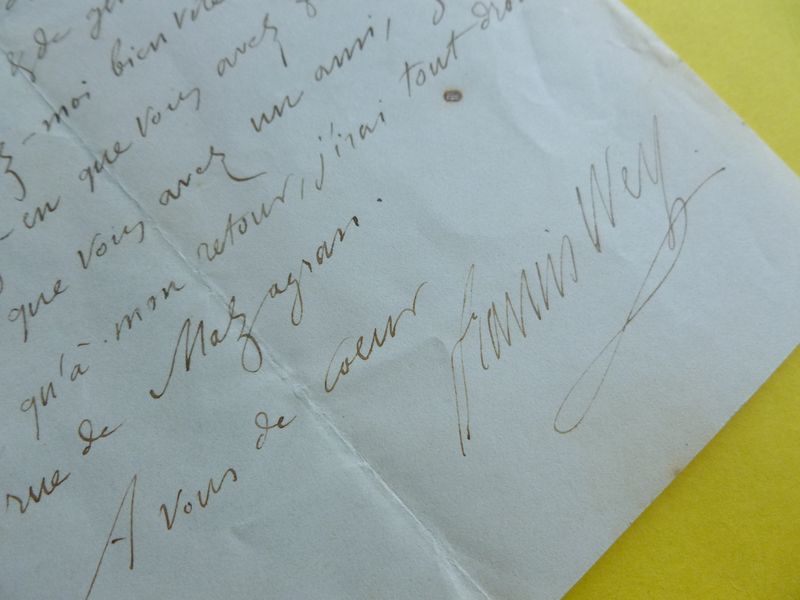 & de
-moi bien
-en que vous avez
que vous avez un ami,
qu'à mon retour, j'irai tout
rue de Mazagran.
A vous de coeur
francis Wey.